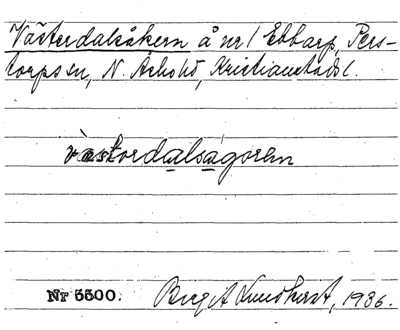 Västerdalsåkern å nr 1 Ebbarp, Pers-
torps sn, N. Åsbo hd, Kristianstads l.
västordalságoren
Nr 5500. Birgit Lundqvist, 1936.